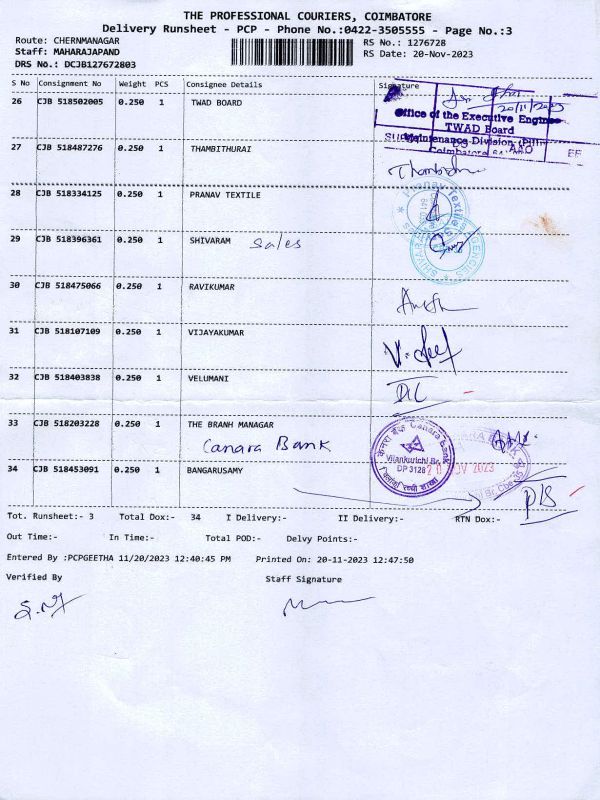 THE PROFESSIONAL COURIERS, COIMBATORE
Delivery Runsheet - PCP - Phone No.:0422-3505555 - Page No.:3
Route: CHERNMANAGAR
RS No.: 1276728
Staff: MAHARAJAPAND
RS Date: 20-Nov-2023
DRS No.: DCJB127672803
S No Consignment No Weight PCS Consignee Details Signature
26 CJB 518502005 0.250 1 TWAD BOARD
20/11/2023
Office of the Executive Engineer
TWAD Board
Maintenance Division
AAO EE
27 CJB 518487276 0.250 1 THAMBITHURAI
28 CJB 518334125 0.250 1 PRANAV TEXTILE
Pranav Textiles
29 CJB 518396361 0.250 1 SHIVARAM Sales
SHIVARAM AGENCIES
30 CJB 518475066 0.250 1 RAVIKUMAR
31 CJB 518107109 0.250 1 VIJAYAKUMAR
32 CJB 518403838 0.250 1 VELUMANI
33 CJB 518203228 0.250 1 THE BRANH MANAGAR
Canara Bank
केनरा बैंक Canara Bank
Vilankurichi Br.
DP 3128
20 NOV 2023
34 CJB 518453091 0.250 1 BANGARUSAMY
Tot. Runsheet:- 3 Total Dox:- 34 I Delivery:- II Delivery:- RTN Dox:-
Out Time:- In Time:- Total POD:- Delvy Points:-
Entered By :PCPGEETHA 11/20/2023 12:40:45 PM Printed On: 20-11-2023 12:47:50
Verified By Staff Signature